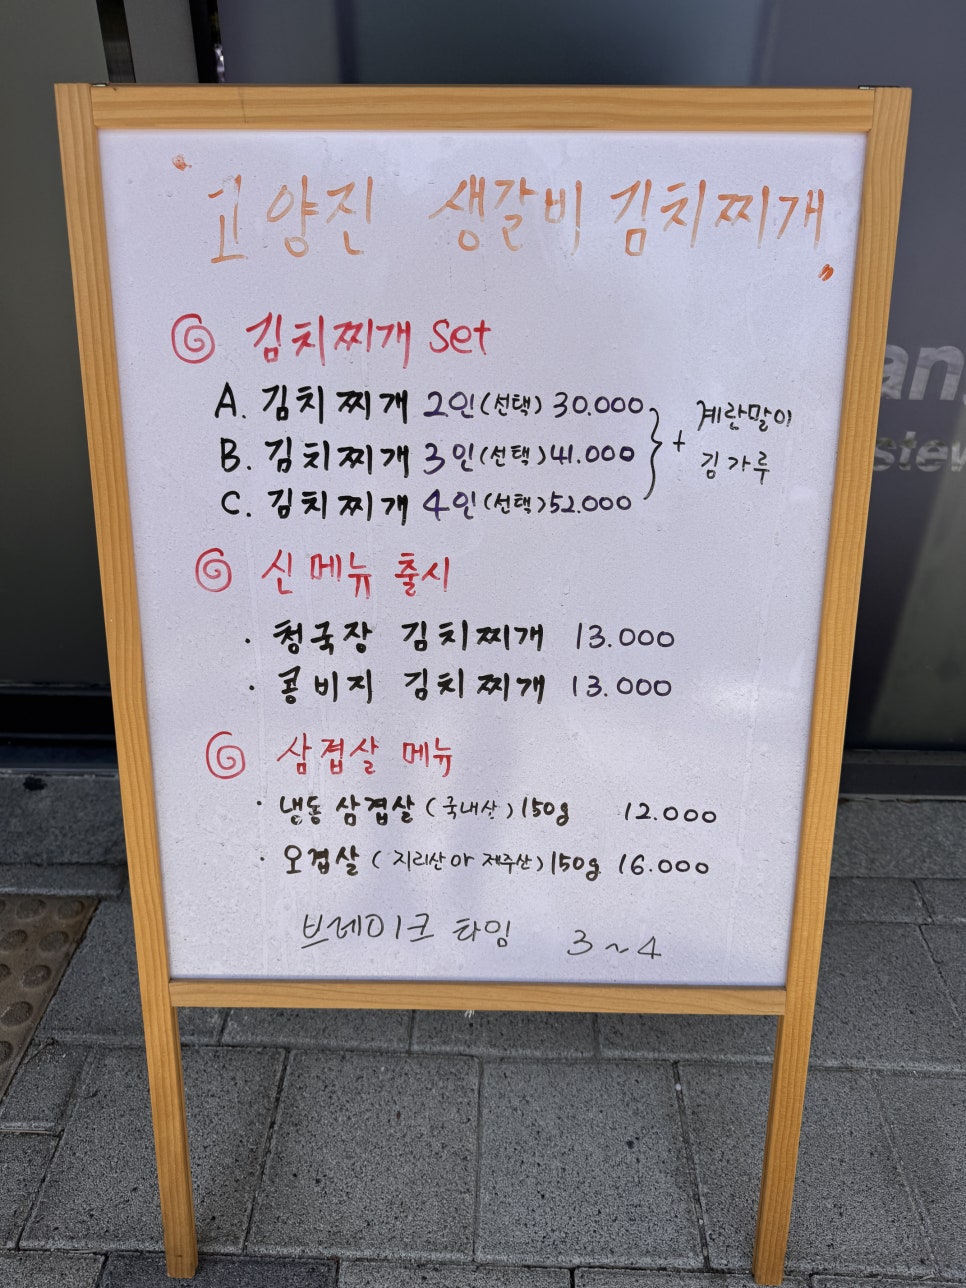 "고양진 생갈비 김치찌개"
김치찌개 set
A. 김치찌개 2인(선택) 30.000
B. 김치찌개 3인(선택) 41.000
C. 김치찌개 4인(선택) 52.000
+ 계란말이
김가루
신메뉴 출시
· 청국장 김치찌개 13.000
· 콩비지 김치찌개 13.000
삼겹살 메뉴
· 냉동 삼겹살 (국내산) 150g 12.000
· 오겹살 (지리산아 제주산) 150g 16.000
브레이크 타임 3~4
an
stew